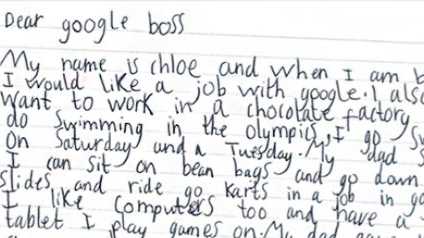 Dear google boss
My name is chloe and when I am
I would like a job with google. I also
want to work in a chocolate factory
do swimming in the olympics, I go
On Saturday and a Tuesday. My dad
I can sit on bean bags and go down
slides and ride go karts in a job in
I like computers too and have a
tablet I play games on. My dad